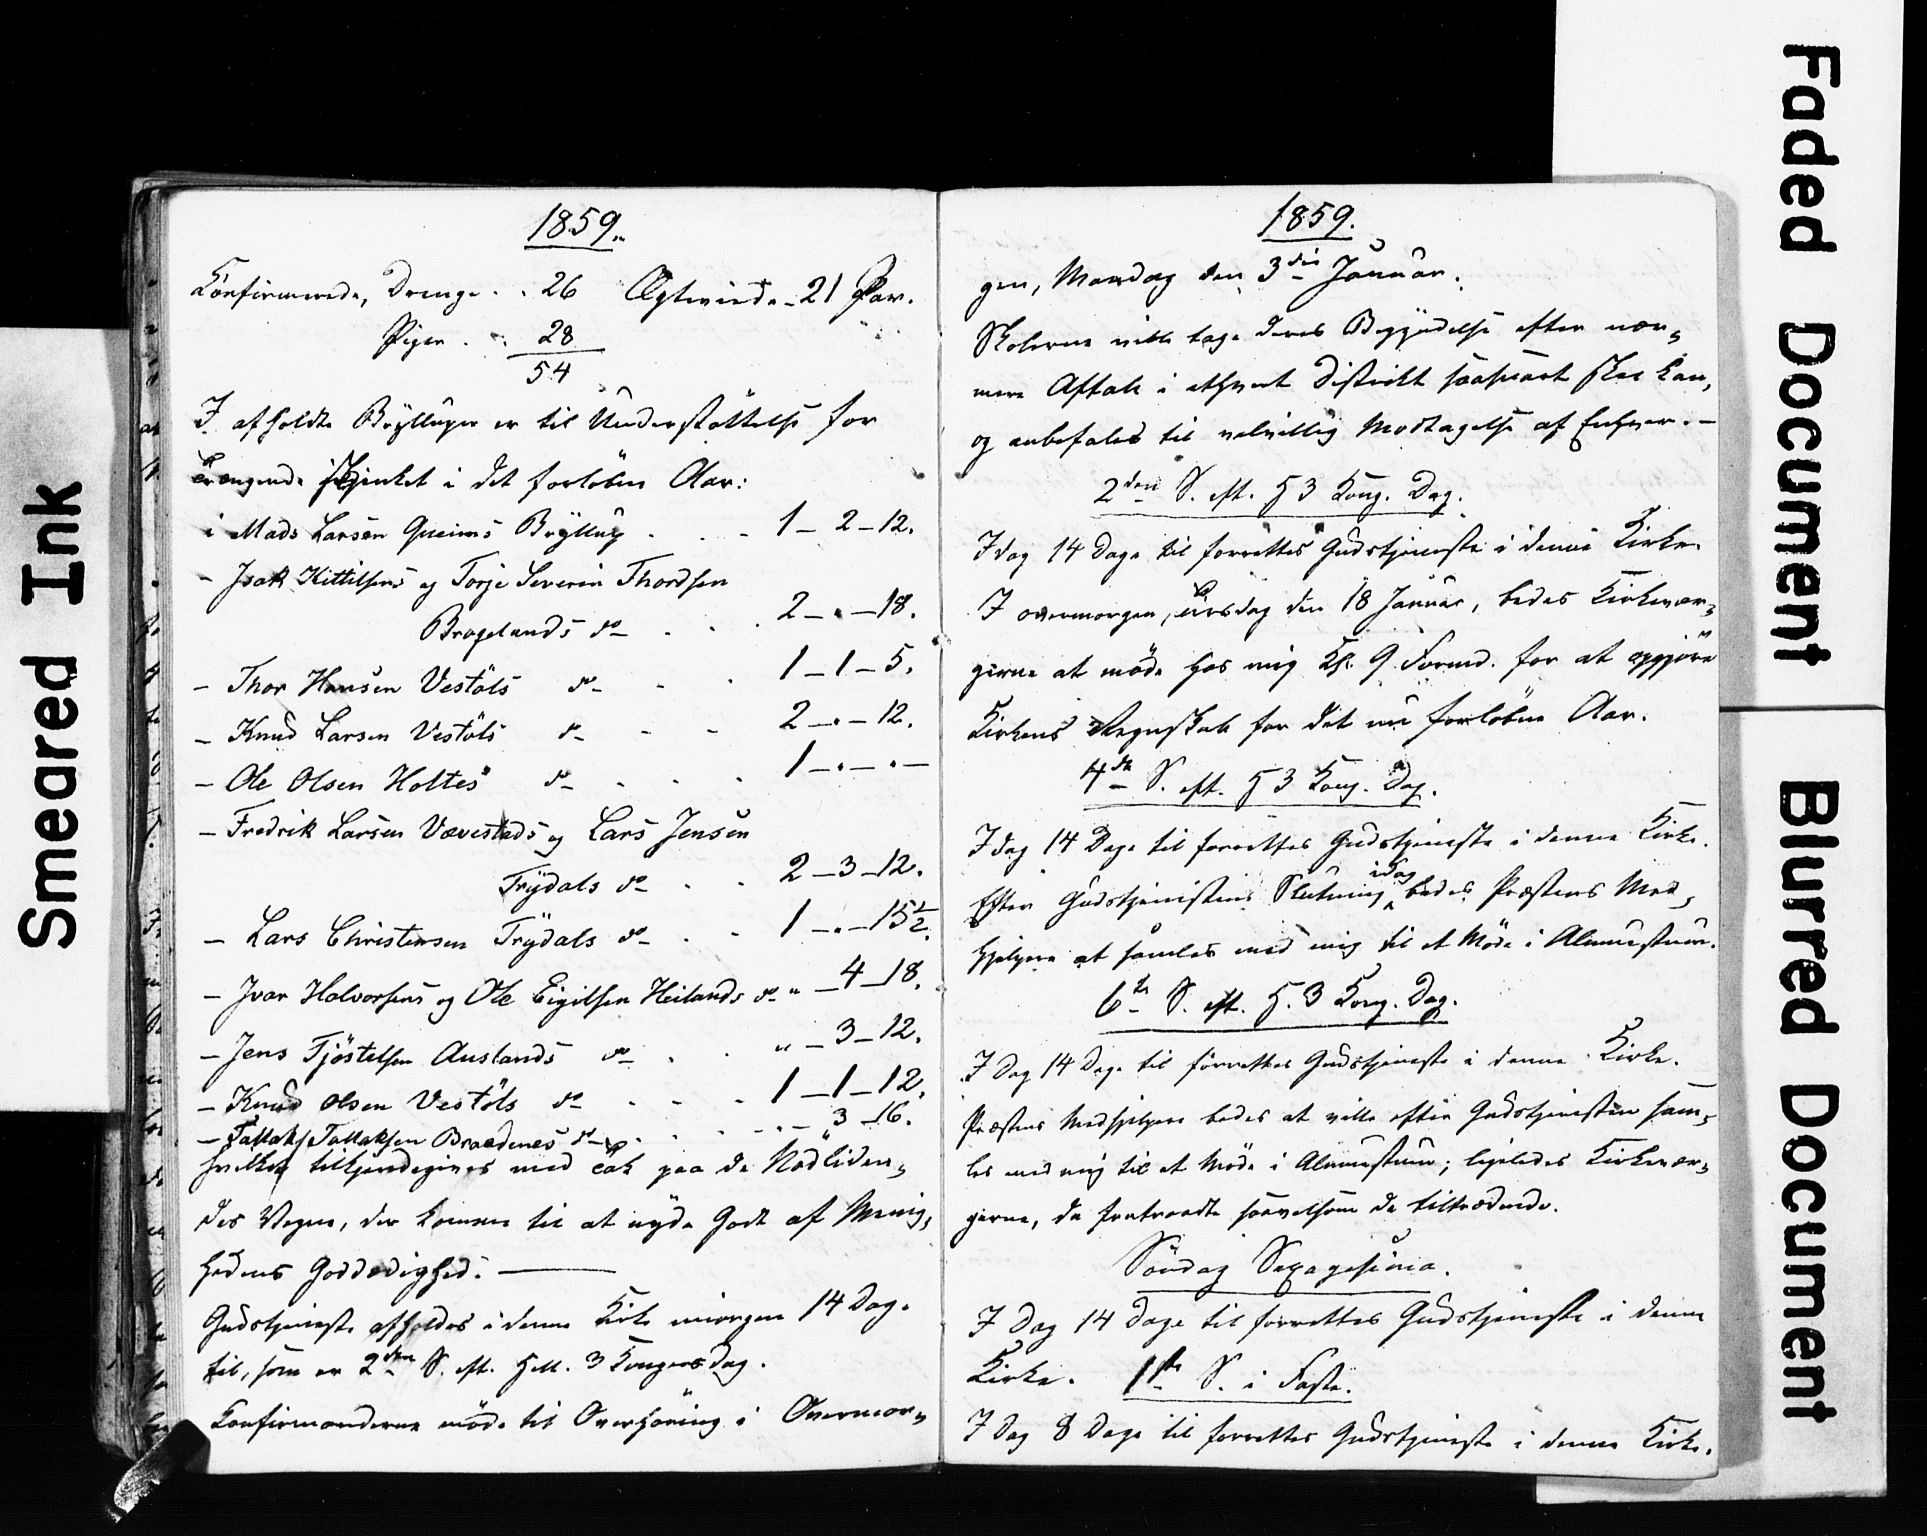 1859.
Konfirmerede, Drenge . . 26 Ægteviede - 21 Par.
Piger . . 28
54
I afholdte Bryllupper er til Understøttelse for
Trængende skjenket i det forløbne Aar:
i Mads Larsen Gueims Bryllup . . - 1 - 2 - 12.
- Isak Kittilsens og Torje Severin Thordsen
Bragelands do - . . 2 - " - 18.
- Thor Hansen Vestöls do - - . 1 - 1 - 5.
- Knud Larsen Vestöls do - - - 2 - " - 12.
- Ole Olsen Holtes do - . . . 1 - " - " -
- Fredrik Larsen Vævestads og Lars Jensen
Trydals do - . . 2 - 3 - 12.
- Lars Christensen Trydals do - . - 1 - " - 15½.
- Ivar Halvorsens og Ole Eigilsen Heilands do - " - 4 - 18.
- Jens Tjöstelsen Auslands do - . . " - 3 - 12.
- Knud Olsen Vestöls do - - - - 1 - 1 - 12.
- Tallak Tallaksen Braadenes do - . . . - " - 3 - 16.
hvilket tilkjendegives med Tak paa de Nødliden,
des Vegne, der komme til at nyde Godt af Menig,
hedens Goddædighed. -
Gudstjeneste afholdes i denne Kirke imorgen 14 Dage
til, som er 2den S. eft. Hell. 3 Kongers Dag.
Konfirmanderne møde til Overhøring i Overmor,
Smeared Ink
1859.
gen, Mandag den 3die Januar.
Skolerne ville tage deres Begyndelse efter nær,
mere Aftale i ethvert Distrikt saasnart skee kan,
og anbefales til velvillig Modtagelse af Enhver. -
2den S. eft. H 3 Kong. Dag.
Idag 14 Dage til forrettes Gudstjeneste i denne Kirke.
I overmorgen, Tirsdag den 18 Januar, bedes Kirkevær,
gerne at møde hos mig Kl. 9 Formd. for at opgjøre
Kirkens Regnskab for det nu forløbne Aar.
4de S. eft. H 3 Kong. Dag.
Idag 14 Dage til forrettes Gudstjeneste i denne Kirke.
Efter Gudstjenestens Slutning idag bedes Præstens Med,
hjelpere at samles med mig til et Møde i Almuestuen.
6te S. eft. H. 3 Kong. Dag.
I Dag 14 Dage til forrettes Gudstjeneste i denne Kirke.
Præstens Medhjelpere bedes at ville efter Gudstjenesten sam,
les med mig til et Møde i Almuestuen; ligeledes Kirkevær,
gerne, de fratraadte saavelsom de tiltrædende.
Søndag Sexagesima.
I Dag 14 Dage til forrettes Gudstjeneste i denne
Kirke. 1ste S. i Faste.
I Dag 8 Dage til forrettes Gudstjeneste i denne Kirke.
Faded Document
Blurred Document